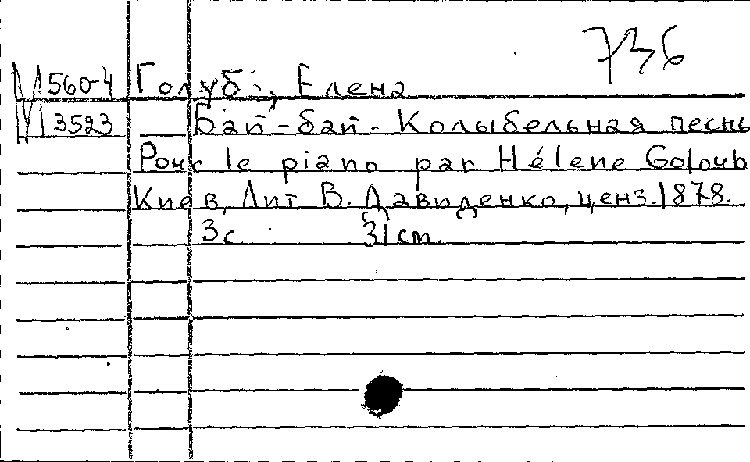 736
М 560-4 Голубъ, Елена
М 3523 Бай-бай. Колыбельная песнь
Pour le piano par Hélène Goloub
Киев, Лит В. Давиденко, ценз. 1878.
3 с. 31 cm.